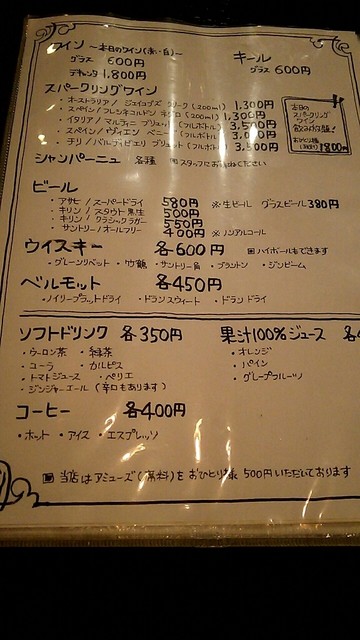 ワイン 〜本日のワイン(赤・白)〜
グラス 600円
デキャンタ 1,800円
キール
グラス 600円
スパークリングワイン
・オーストラリア/ジェイコブス クリーク(200ml) 1,300円
・スペイン/フレシネコルドン ネグロ(200ml) 1,300円
・イタリア/マルティニ ブリュット(フルボトル) 3,500円
・スペイン/ヴィエン ベニート(フルボトル) 3,000円
・チリ/バルディビエソ ブリュット(フルボトル) 3,500円
本日の
スパークリング
ワイン
飲み放題!
おひとり様
1800円
シャンパーニュ 各種 スタッフにお尋ねください
ビール
・アサヒ/スーパードライ 580円 ※生ビール グラスビール380円
・キリン/スタウト黒生 500円
・キリン/クラシックラガー 550円
・サントリー/オールフリー 400円 ※ノンアルコール
ウイスキー 各600円 ハイボールもできます
・グレーンリベット ・竹鶴 ・サントリー角 ・ブラントン ・ジンビーム
ベルモット 各450円
・ノイリープラットドライ ・ドランスウィート ・ドランドライ
ソフトドリンク 各350円
・ウーロン茶 ・緑茶
・コーラ ・カルピス
・トマトジュース ・ペリエ
・ジンジャーエール(辛口もあります)
果汁100%ジュース 各4
・オレンジ
・パイン
・グレープフルーツ
コーヒー 各400円
・ホット ・アイス ・エスプレッソ
当店はアミューズ(有料)をおひとり様 500円いただいております